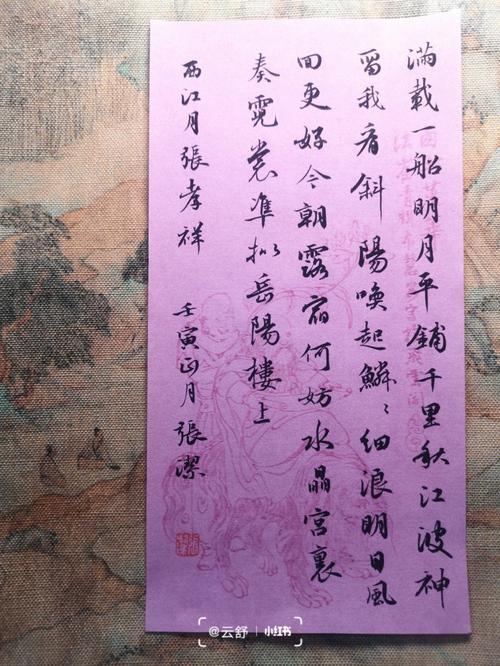 滿載一船明月平鋪千里秋江波神
留我看斜陽喚起鱗〻細浪明日風
回更好今朝露宿何妨水晶宮裏
奏霓裳準拟岳陽樓上
西江月張孝祥 壬寅正月張潔
@云舒 小红书